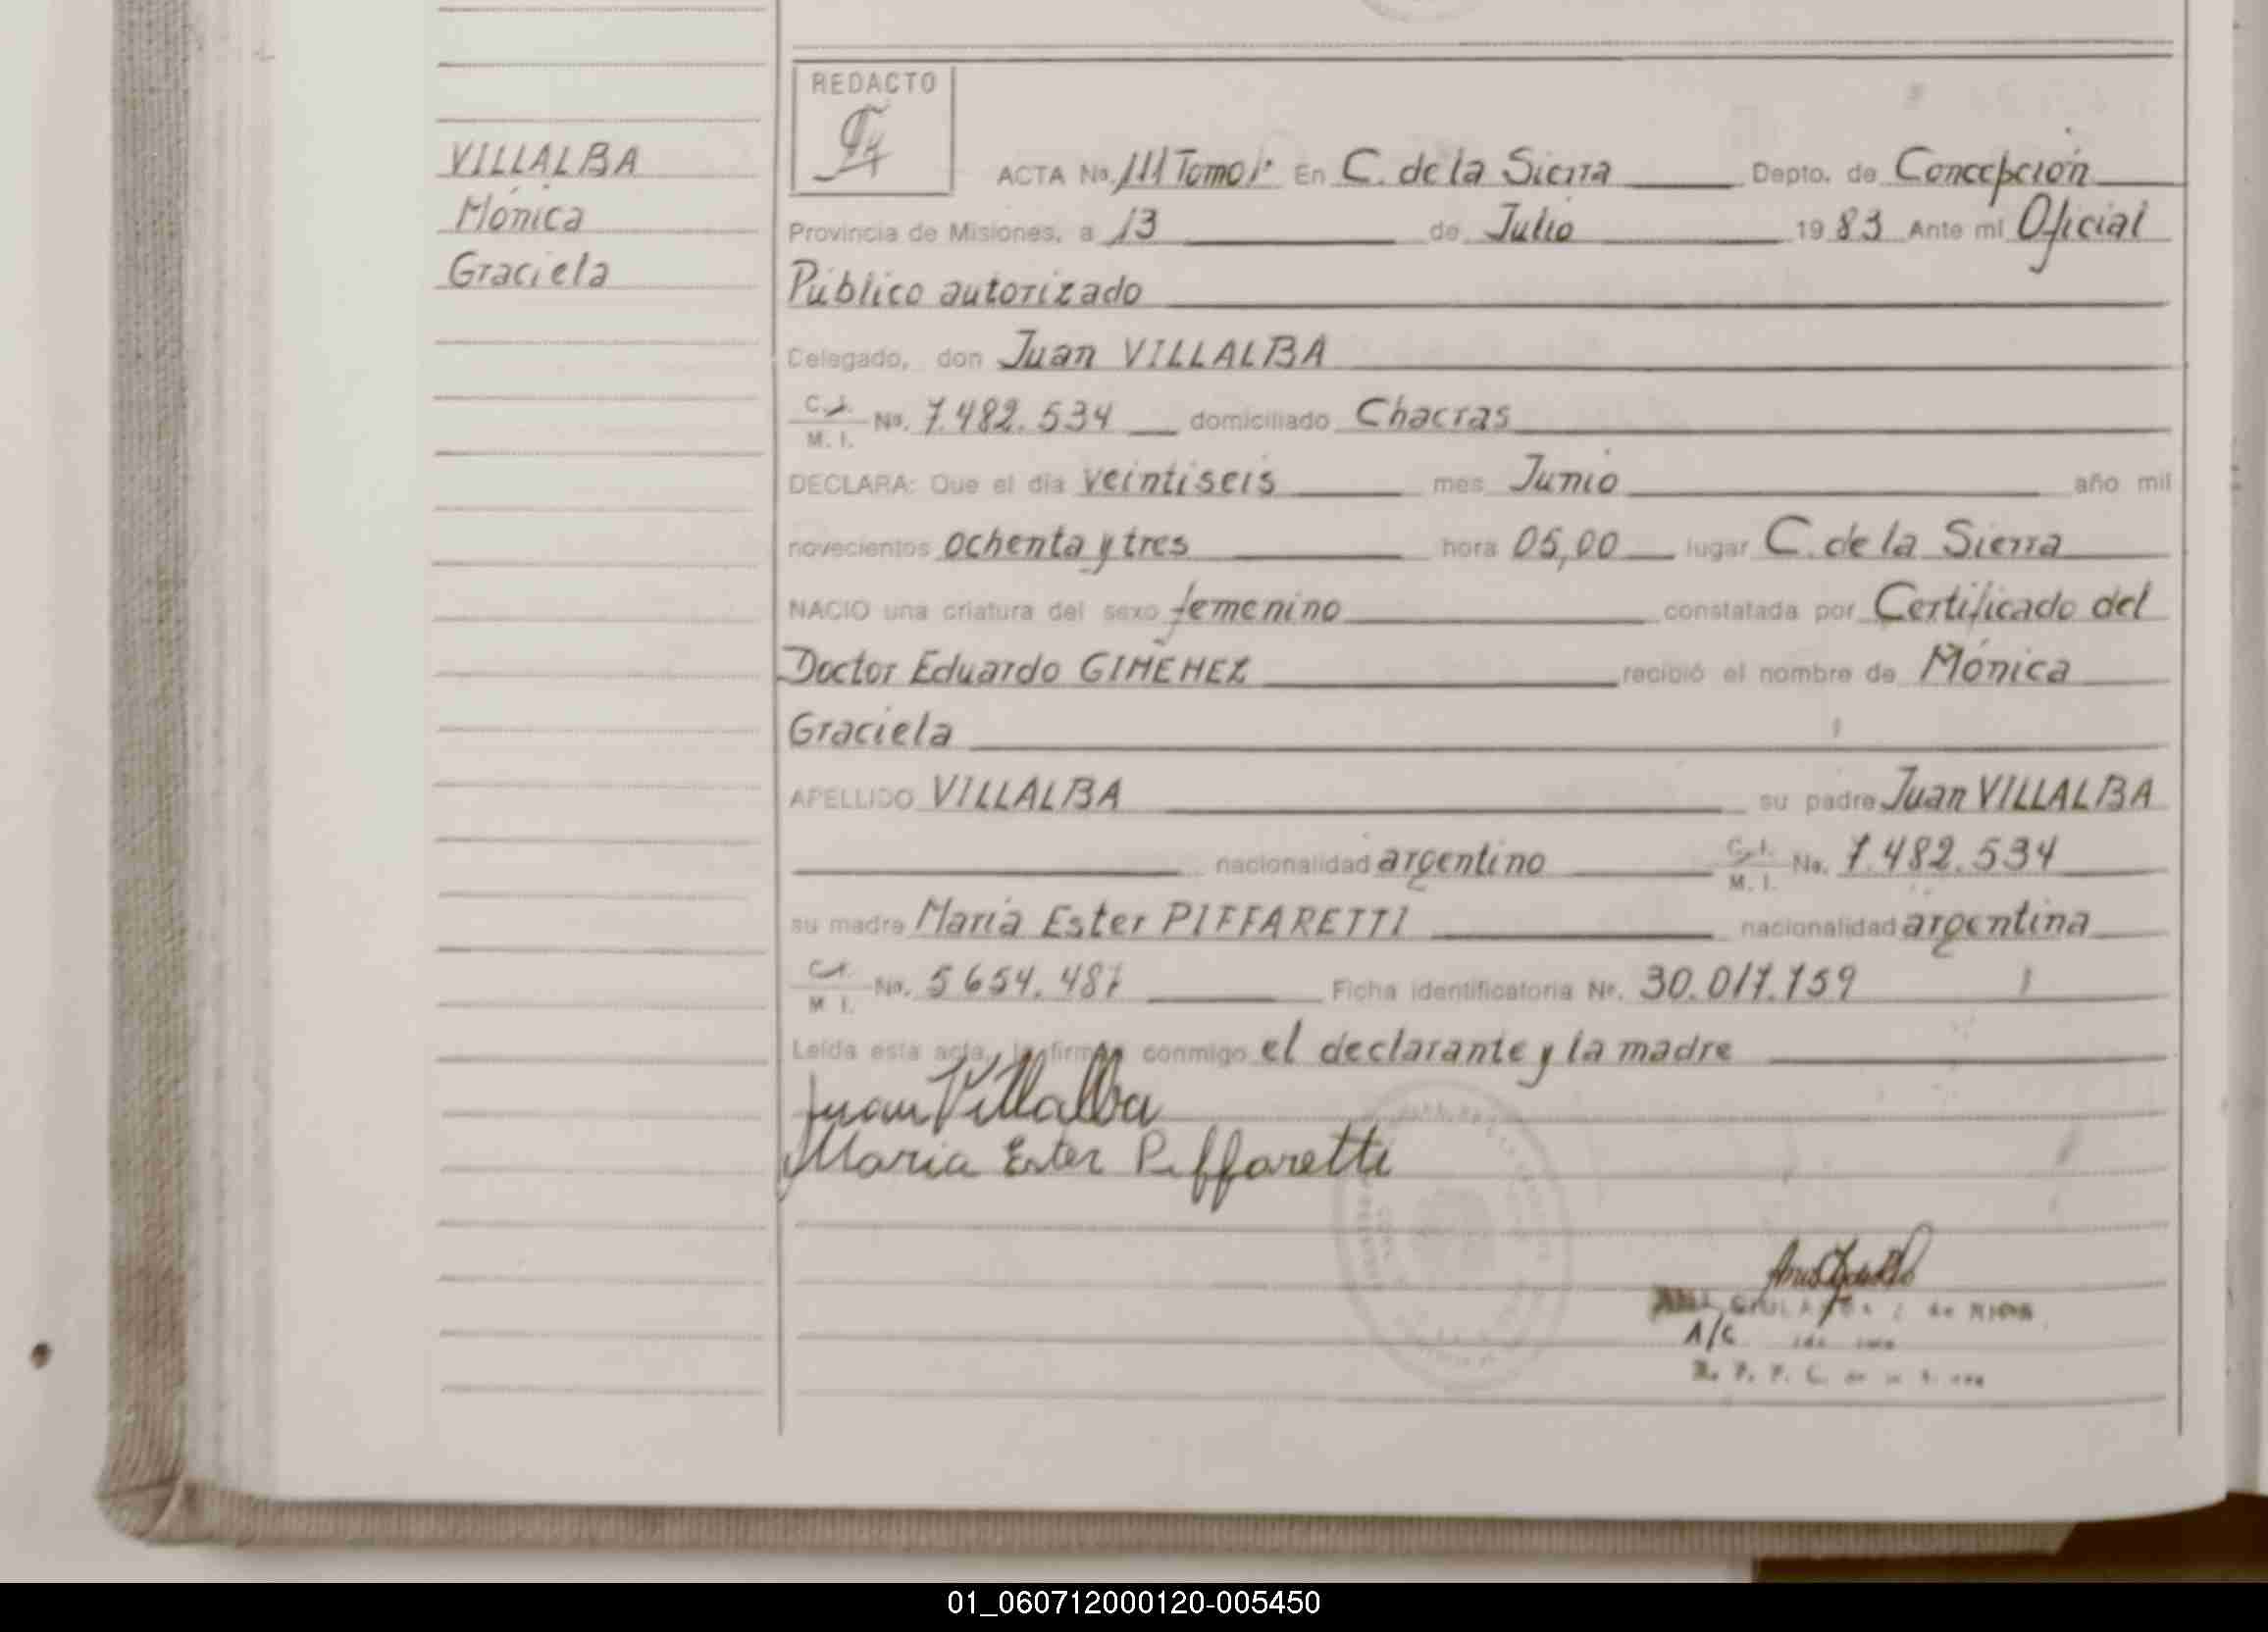 VILLALBA
Mónica
Graciela
REDACTO
ACTA No. 111 Tomo 1º En C. de la Sierra Depto. de Concepción
Provincia de Misiones, a 13 de Julio 1983 Ante mí Oficial
Público autorizado
Delegado, don Juan VILLALBA
C.I. M. I. No. 7.482.534 domiciliado Chacras
DECLARA: Que el día veintiseis mes Junio año mil
novecientos ochenta y tres hora 05,00 lugar C. de la Sierra
NACIO una criatura del sexo femenino constatada por Certificado del
Doctor Eduardo GIMENEZ recibió el nombre de Mónica
Graciela
APELLIDO VILLALBA su padre Juan VILLALBA
nacionalidad argentino C.I. M. I. No. 7.482.534
su madre María Ester PIFFARETTI nacionalidad argentina
C.I. M. I. No. 5654.481 Ficha identificatoria Nº. 30.017.159
Leída esta acta, la firman conmigo el declarante y la madre
Juan Villalba
Maria Ester Piffaretti
de RIOS
A/C
01_060712000120-005450